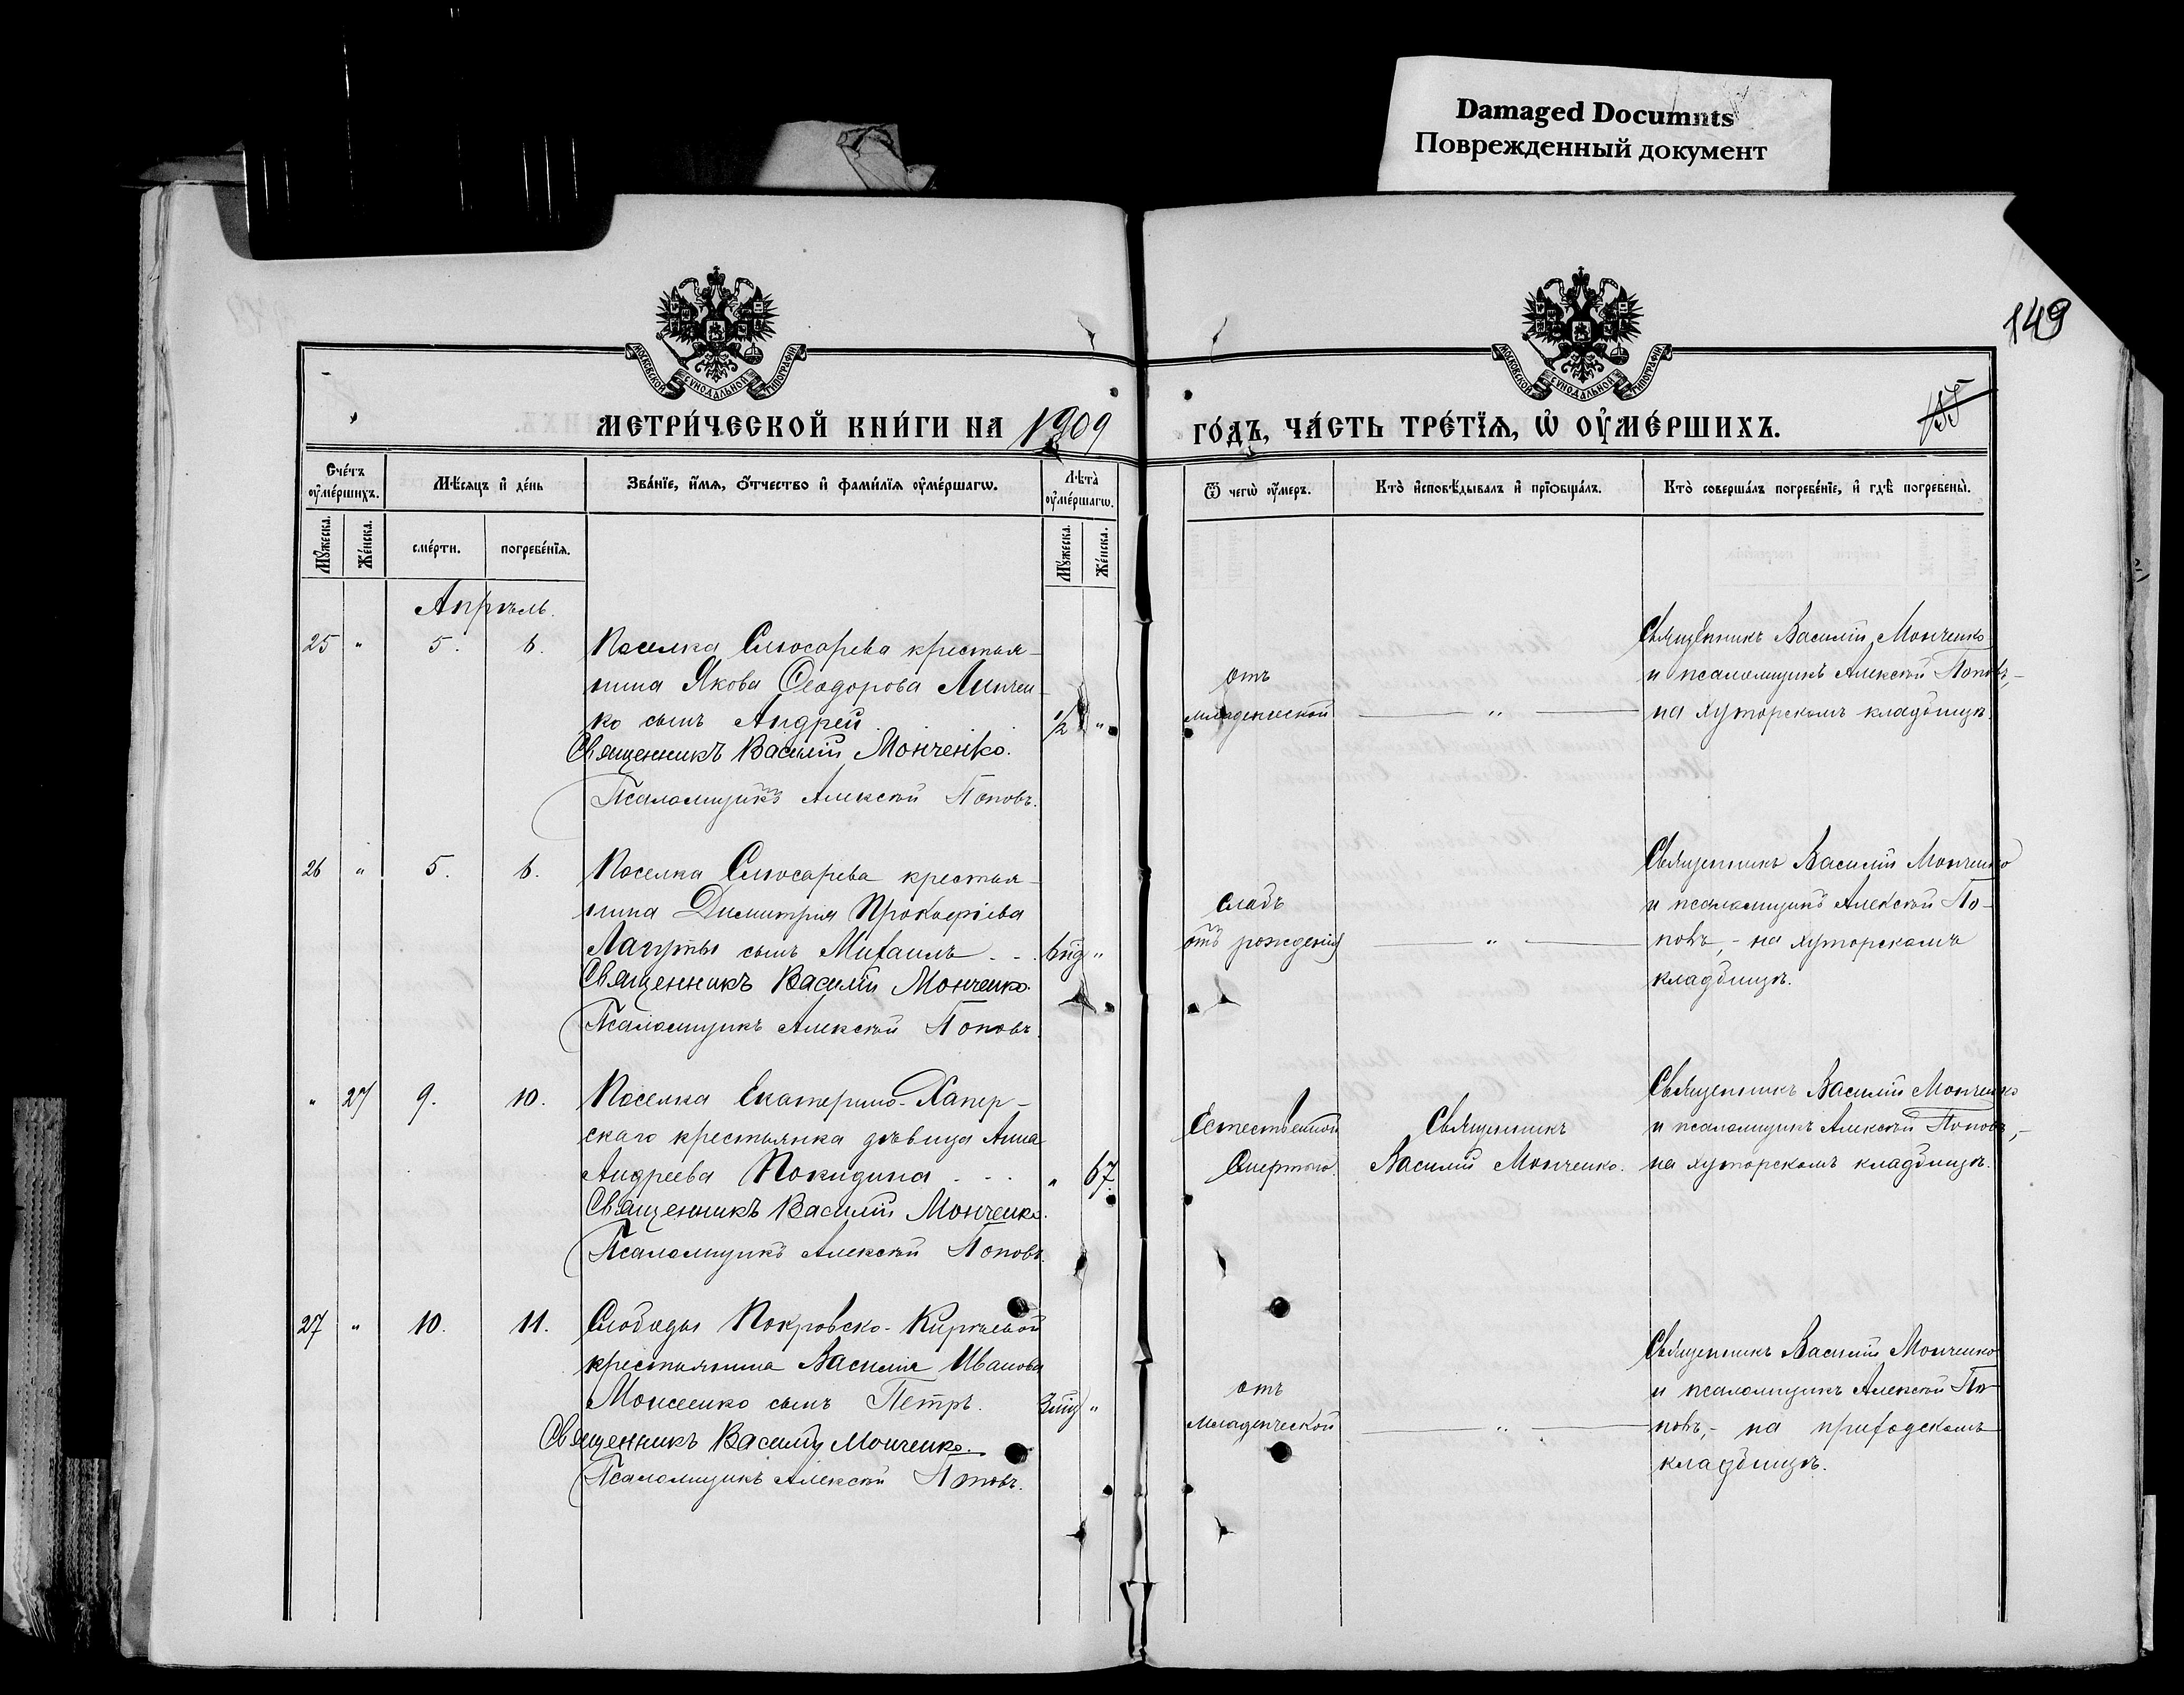 Damaged Documnts
Поврежденный документ
149
МОСКОВСКОЙ СѴНОДАЛЬНОЙ ТИПОГРАФІИ
МОСКОВСКОЙ СѴНОДАЛЬНОЙ ТИПОГРАФІИ
МЕТРИ́ЧЕСКОЙ КНИ́ГИ НА 1909
ГО́ДЪ, ЧА́СТЬ ТРЕ́ТЇѦ, Ѽ ОУ҆МЕ́РШИХЪ.
155
Сче́тъ оу҆ме́ршихъ.
Мѣ́сяцъ и҆ де́нь
Зва́нїе, и҆́мѧ, ѻ҆́тчество и҆ фами́лїѧ оу҆ме́ршагѡ.
Лѣта̀ оу҆ме́ршагѡ.
Ѿ чегѡ̀ оу҆́меръ.
Кто̀ и҆сповѣ́дывалъ и҆ прїѡбща́лъ.
Кто̀ соверша́лъ погребе́нїе, и҆ гдѣ̀ погребены̀.
Мꙋ́жеска.
Же́нска.
сме́рти.
погребе́нїѧ.
Мꙋ́жеска.
Же́нска.
Апрѣль.
25 " 5. 6. Поселка Слюсарева крестья-
нина Якова Ѳеодорова Линчен-
ко сынъ Андрей 1/2 "
Священникъ Василій Мончению.
Псаломщикъ Алексѣй Поповъ.
отъ
младенческой
"
Священникъ Василій Монченко
и псаломщикъ Алексѣй Поповъ,-
на хуторскомъ кладбищѣ.
26 " 5. 6. Поселка Слюсарева крестья-
нина Димитрія Прокофіева
Лагуты сынъ Михаилъ . . . 6 нд "
Священникъ Василій Монченко.
Псаломщикъ Алексѣй Поповъ.
слабъ
отъ рожденія
"
Священникъ Василій Монченко
и псаломщикъ Алексѣй По-
повъ,- на хуторскомъ
кладбищѣ.
" 27 9. 10. Поселка Екатерино-Хапер-
скаго крестьянка дѣвица Анна
Андреева Покидина . . . " 67.
Священникъ Василій Монченко.
Псаломщикъ Алексѣй Поповъ.
Естественной
смертью.
Священникъ
Василій Монченко.
Священникъ Василій Монченко
и псаломщикъ Алексѣй Поповъ,-
на хуторскомъ кладбищѣ.
27 " 10. 11. Слободы Покровско-Кирѣевой
крестьянина Василія Иванова
Моисеенко сынъ Петръ. "
Священникъ Василій Монченко.
Псаломщикъ Алексѣй Поповъ.
отъ
младенческой
"
Священникъ Василій Монченко
и псаломщикъ Алексѣй По-
повъ,- на приходскомъ
кладбищѣ.